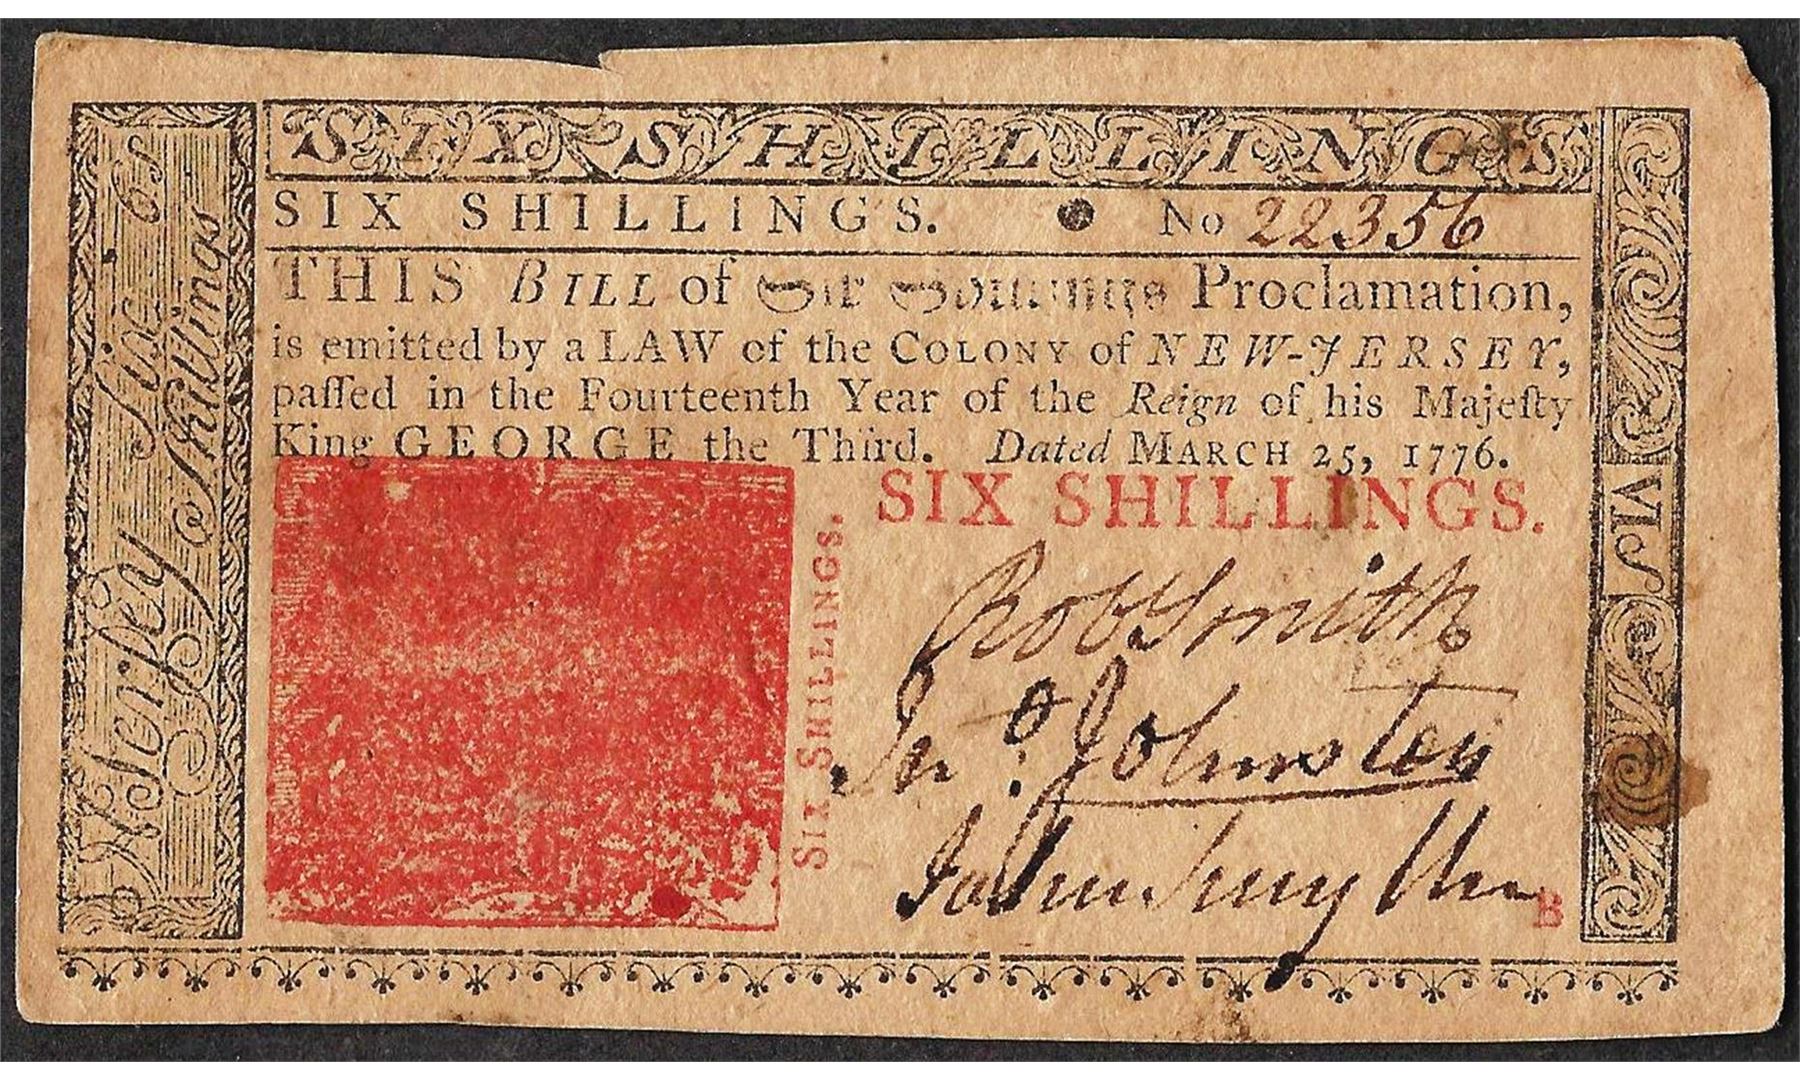 SIX SHILLINGS
SIX SHILLINGS. No 22356
THIS BILL of Six Shillings Proclamation,
is emitted by a LAW of the COLONY of NEW-JERSEY,
paſſed in the Fourteenth Year of the Reign of his Majeſty
King GEORGE the Third. Dated MARCH 25, 1776.
SIX SHILLINGS.
SIX SHILLINGS.
Rob Smith
Jno. Johnston
John Smyth
B
Six 6s
Jerſey Shillings
VIS